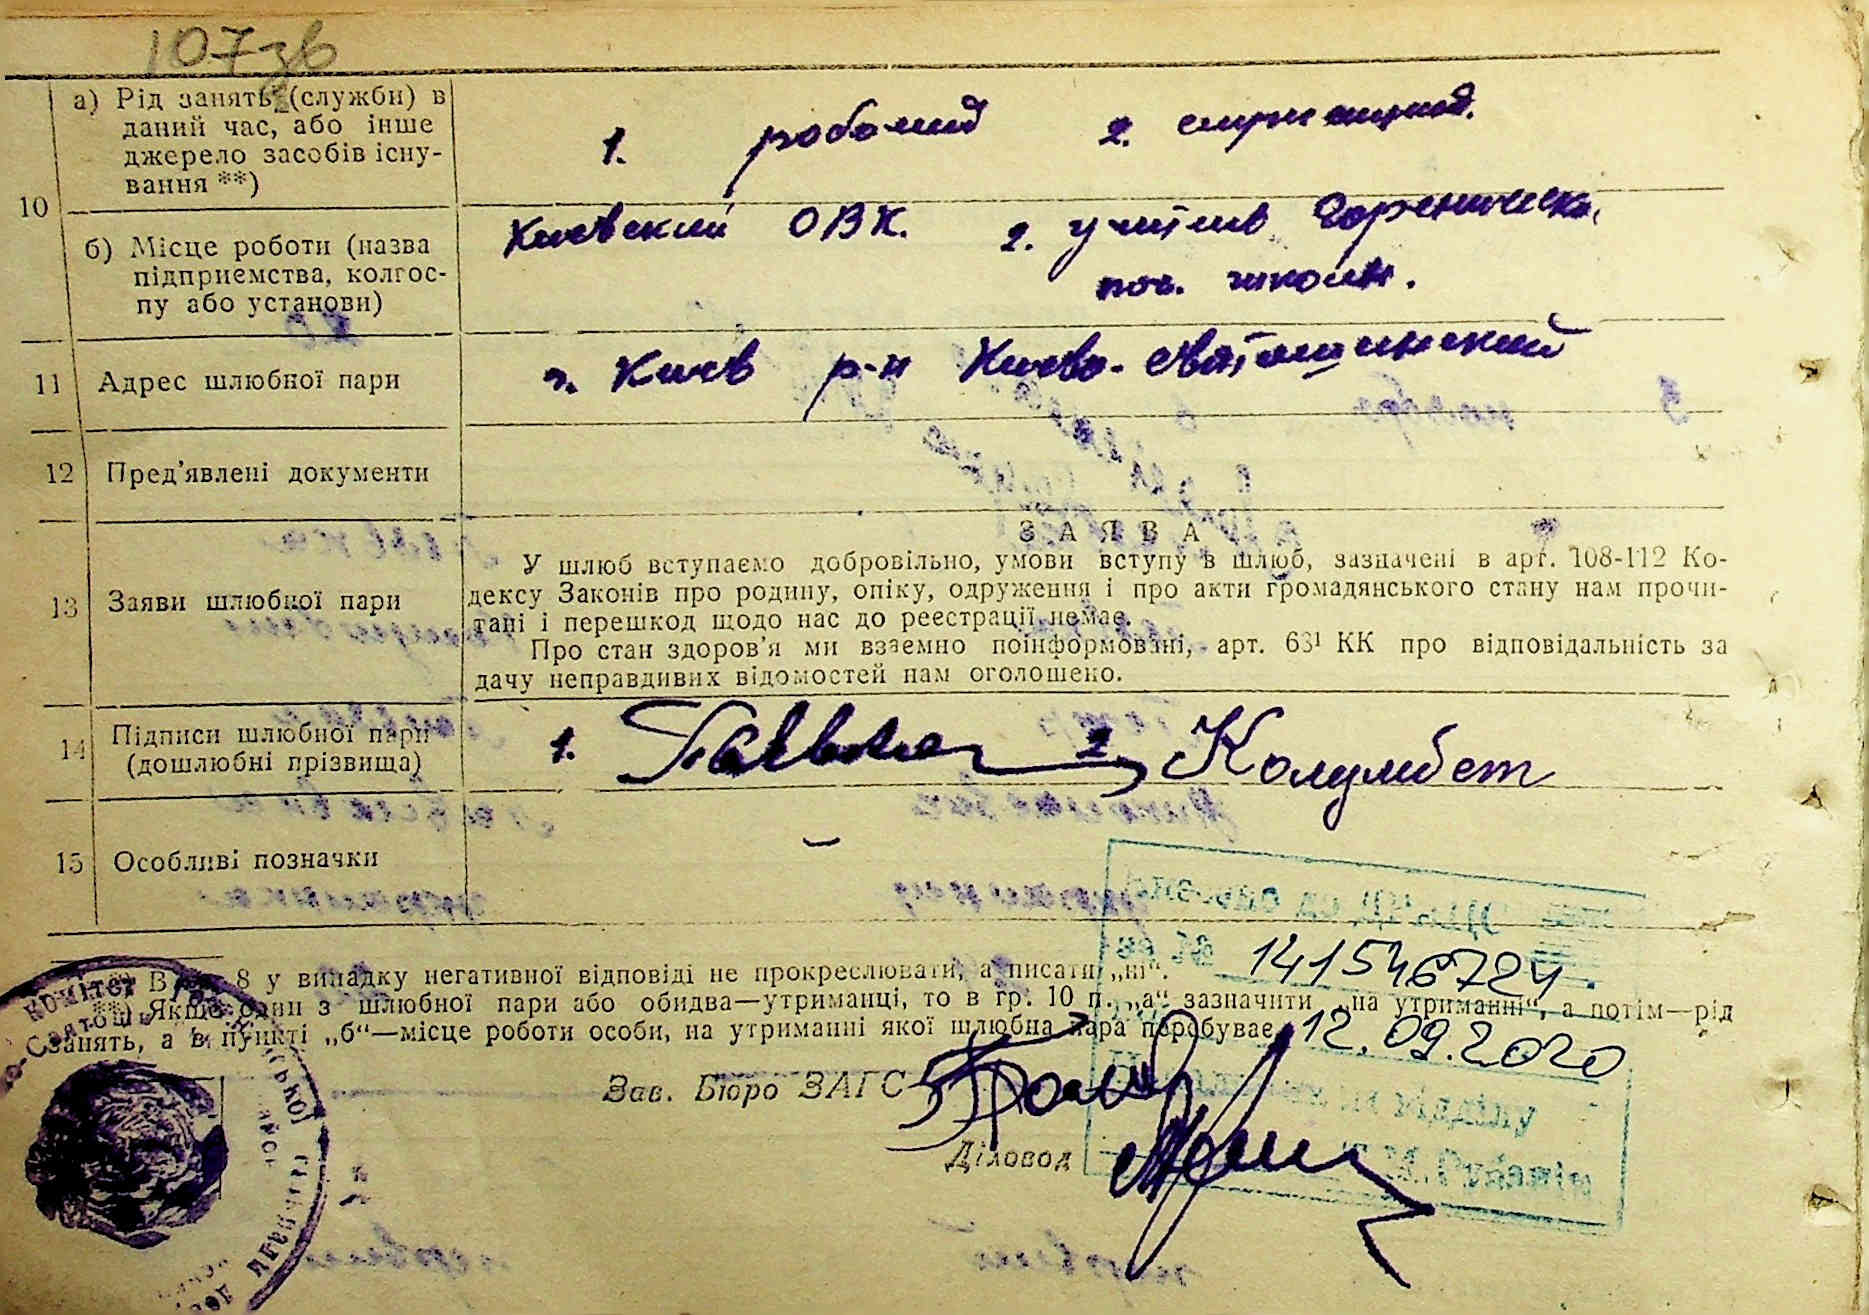 107зв
10
а) Рід занять (служби) в даний час, або інше джерело засобів існу- вання **)
1. робочий 2. служащий.
б) Місце роботи (назва підприємства, колгос- пу або установи)
Киевский ОВК. 2. учитель
поч. школи.
11 Адрес шлюбної пари
г. Киев р-н Киево-Святошинский
12 Пред’явлені документи
13 Заяви шлюбної пари
ЗАЯВА
У шлюб вступаємо добровільно, умови вступу в шлюб, зазначені в арт. 108-112 Ко-
дексу Законів про родину, опіку, одруження і про акти громадянського стану нам прочи-
тані і перешкод щодо нас до реєстрації немає.
Про стан здоров’я ми взаємно поінформовані, арт. 63¹ КК про відповідальність за
дачу неправдивих відомостей нам оголошено.
14 Підписи шлюбної пари (дошлюбні прізвища)
1. 2. Колумбет
15 Особливі позначки
—
141546724
8 у випадку негативної відповіді не прокреслювати, а писати „ні“.
**) Якщо один з шлюбної пари або обидва—утриманці, то в гр. 10 п. „а“ зазначити „на утриманні“, а потім—рід
занять, а в пункті „б“—місце роботи особи, на утриманні якої шлюбна пара перебуває.
12.09.2020
Зав. Бюро ЗАГС
Діловод